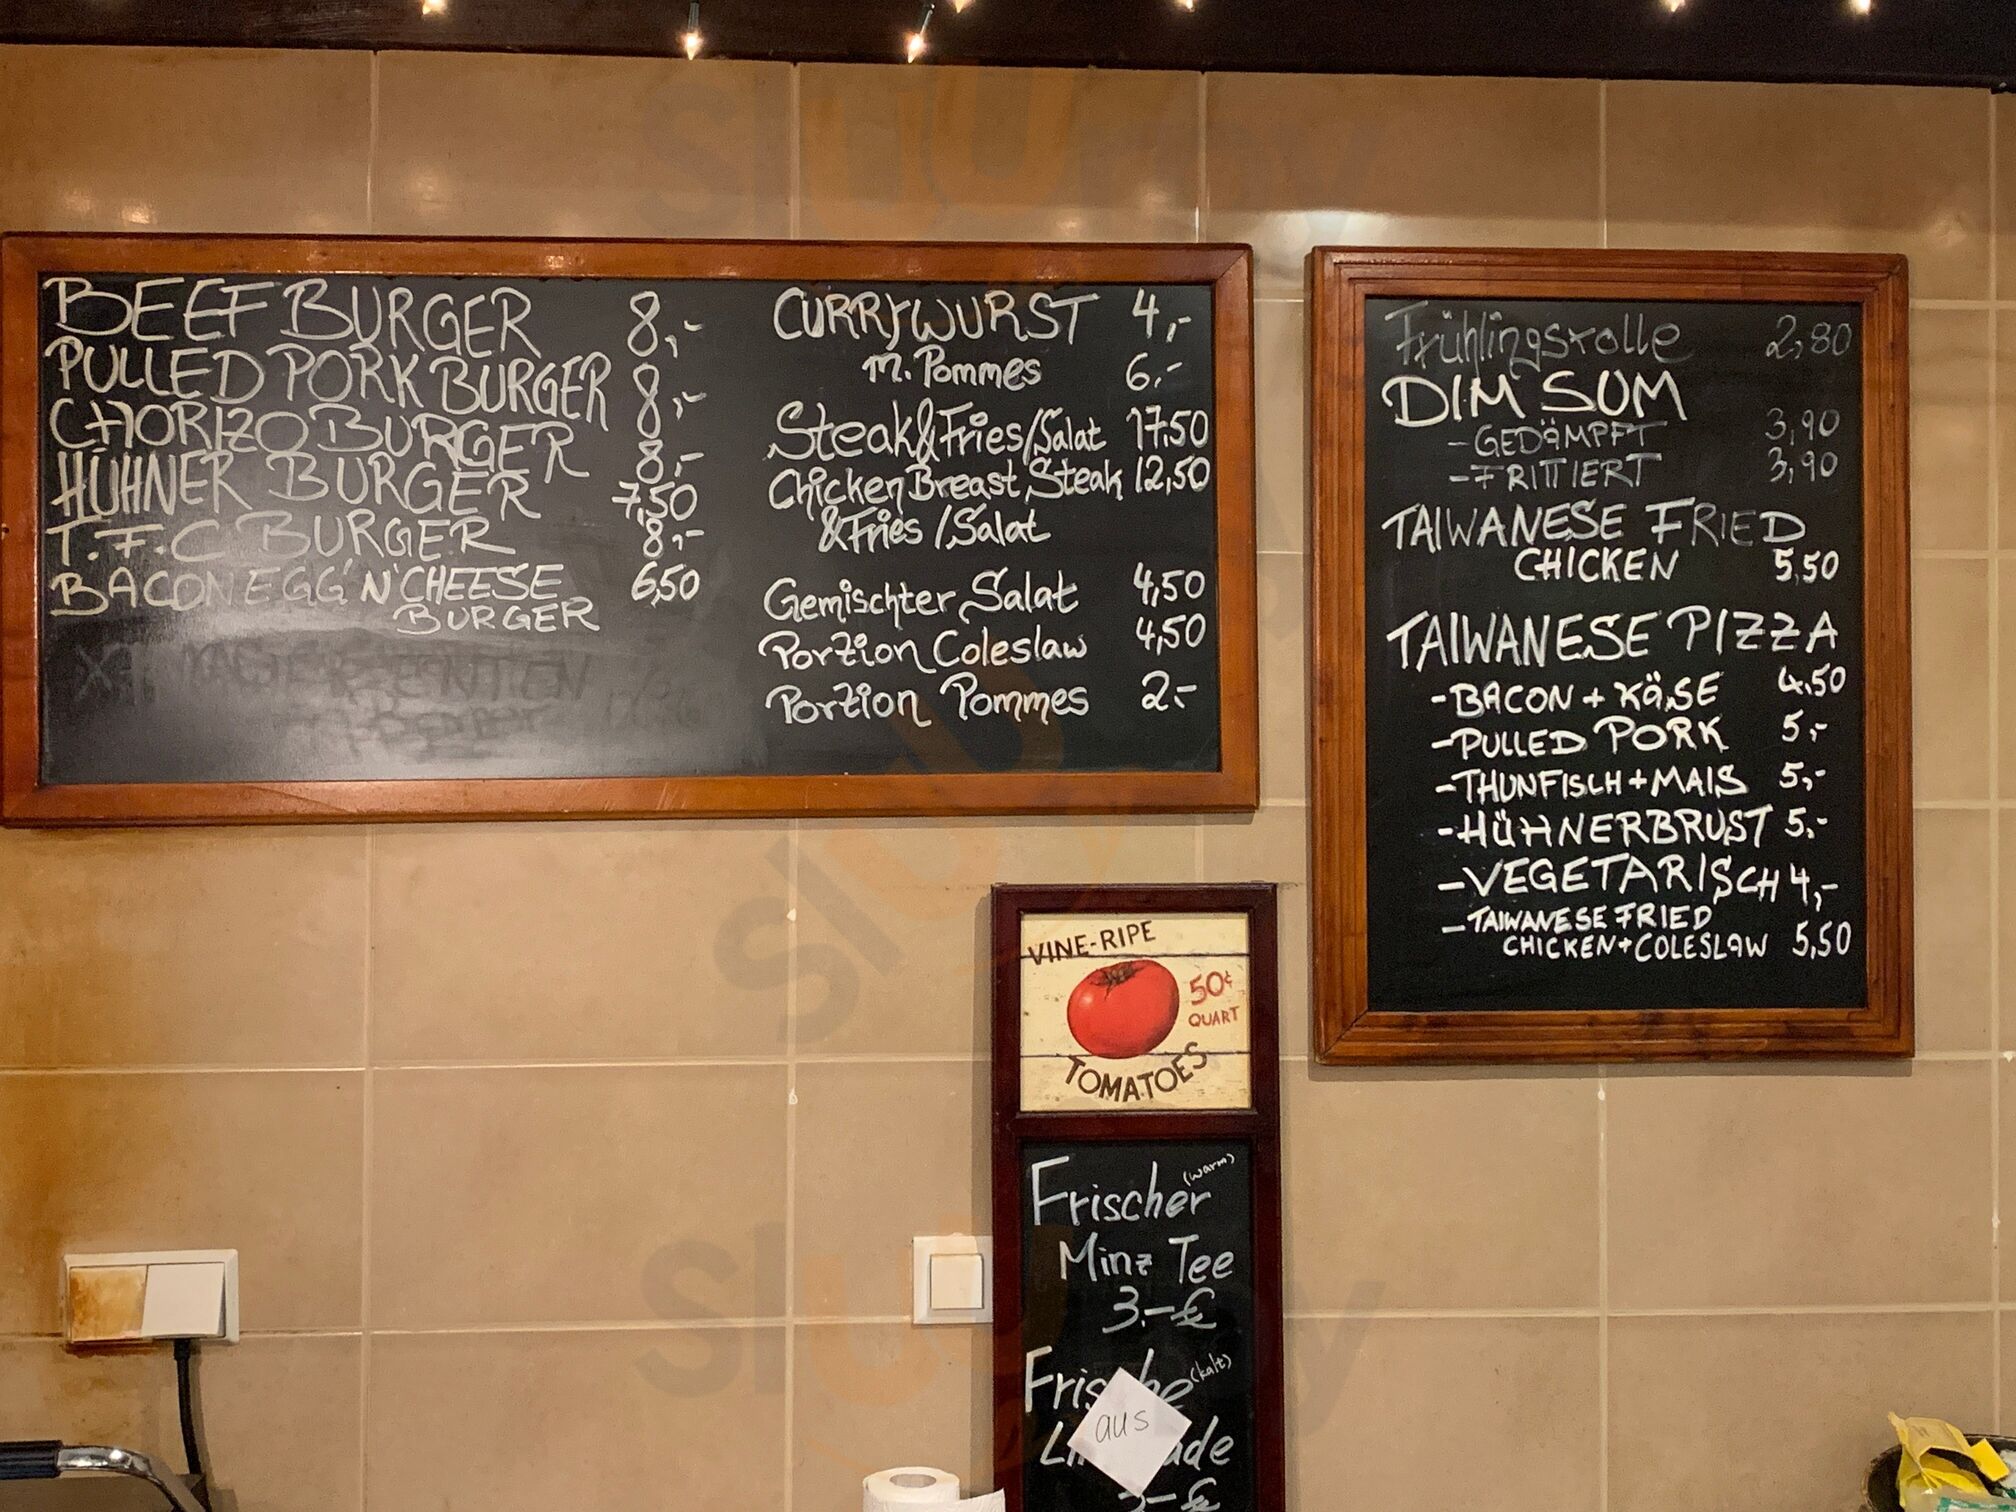 BEEF BURGER 8,-
PULLED PORK BURGER 8,-
CHORIZO BURGER 8,-
HÜHNER BURGER 7,50
T.F.C BURGER 8,-
BACON EGG'N'CHEESE 6,50
BURGER
CURRYWURST 4,-
m. Pommes 6,-
Steak&Fries/Salat 17,50
Chicken Breast Steak 12,50
&Fries/Salat
Gemischter Salat 4,50
Portion Coleslaw 4,50
Portion Pommes 2-
Frühlingsrolle 2,80
DIM SUM
-GEDÄMPFT 3,90
-FRITTIERT 3,90
TAIWANESE FRIED
CHICKEN 5,50
TAIWANESE PIZZA
-BACON + KÄSE 4,50
-PULLED PORK 5,-
-THUNFISCH+MAIS 5,-
-HÜHNERBRUST 5,-
-VEGETARISCH 4,-
-TAIWANESE FRIED
CHICKEN+COLESLAW 5,50
VINE-RIPE
50¢
QUART
TOMATOES
Frischer (warm)
Minz Tee
3.-€
(kalt)
aus
3-€
sluurpy
sluurpy
sluurpy